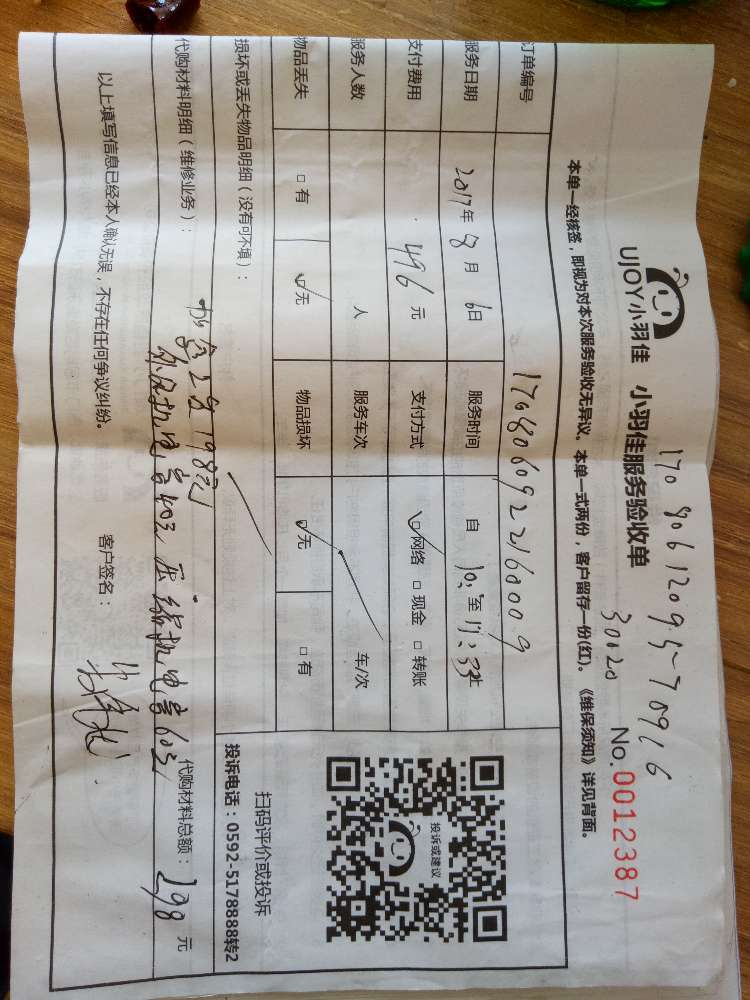 UJOY小羽佳 小羽佳服务验收单
No.0012387
30020
本单一经核签，即视为对本次服务验收无异议。本单一式两份，客户留存一份(红)。《维保须知》详见背面。
订单编号
服务日期 2017年8月6日 服务时间 自 至 止
支付费用 496元 支付方式 ☑网络 □现金 □转账
服务人数 人 服务车次 车/次
物品丢失 □有 ☑无 物品损坏 ☑无 □有
损坏或丢失物品明细（没有可不填）：
投诉或建议
扫码评价或投诉
投诉电话：0592-5178888转2
代购材料明细（维修业务）：
198元
外风机电容40元 压缩机电容60元
代购材料总额：298元
以上填写信息已经本人确认无误，不存在任何争议纠纷。
客户签名：